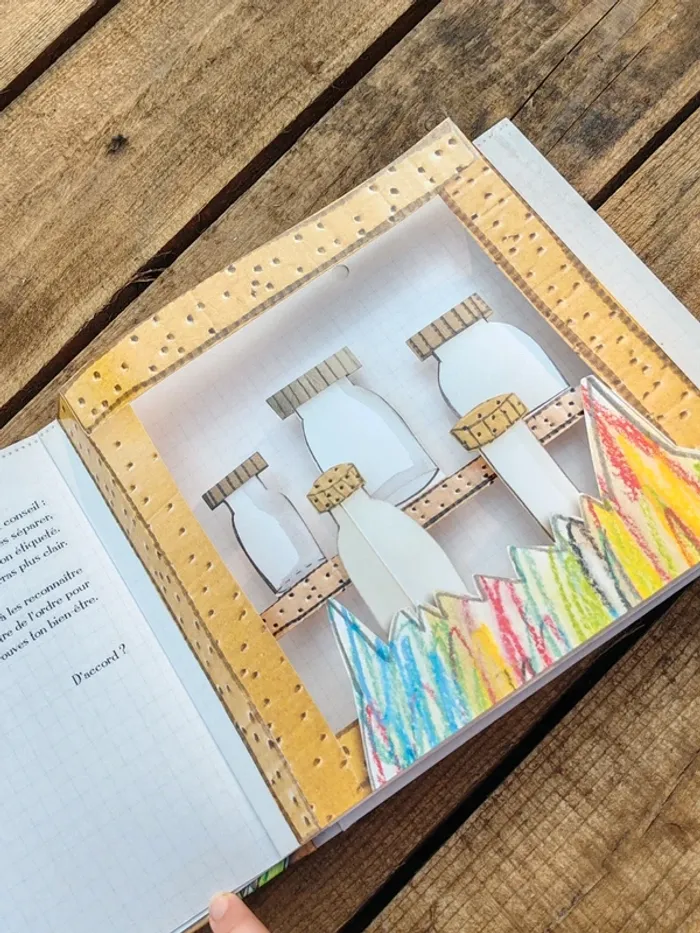 conseil :
es séparer,
on étiqueté.
ras plus clair.
s les reconnaître
re de l'ordre pour
ouves ton bien-être.
D'accord ?